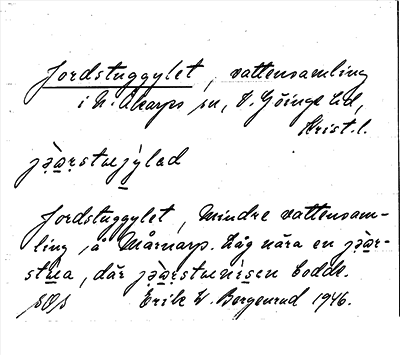 Jordstuggylet, vattensamling
i N. Åkarps sn, V. Göinge hd,
Krist. l.
jo̱a̱rstujylad
Jordstuggylet, mindre vattensam-
ling, å Mårnarp. Låg nära en joar-
stua, där joarstuenisen bodde.
Erik W. Bergenrud 1946.